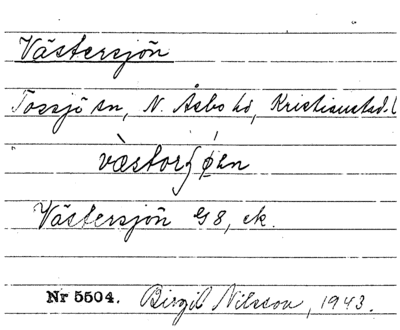 Västersjön
Tossjö sn, N. Åsbo hd, Kristianstad. l
vàstorʃ øen
Västersjön G8, ek.
Nr 5504. Birgit Nilsson, 1943.